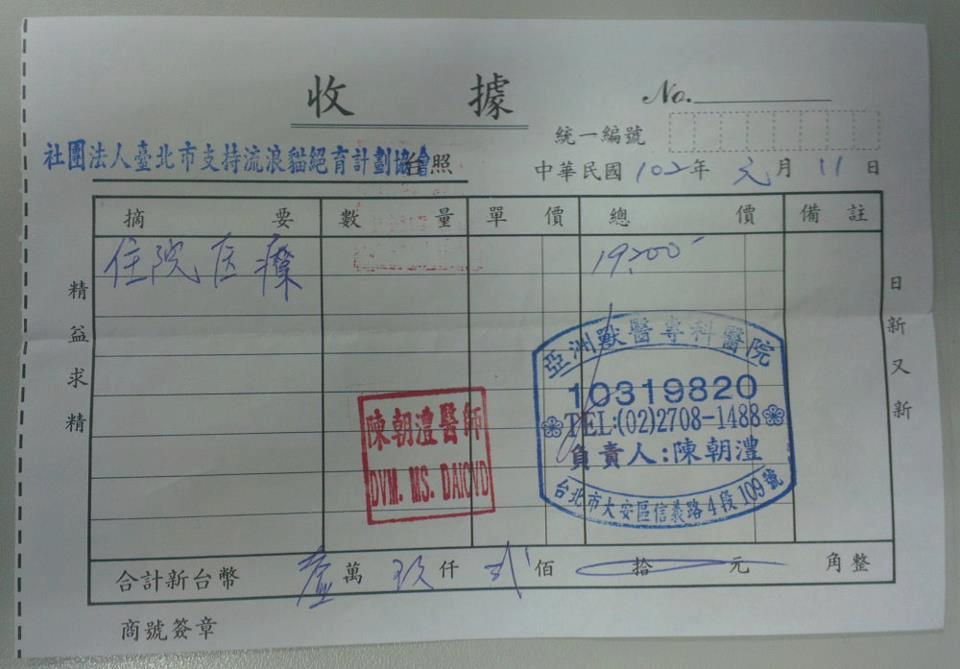 收據
No.
統一編號
社團法人臺北市支持流浪貓絕育計劃協會 台照
中華民國 102 年 元 月 11 日
摘要 數量 單價 總價 備註
住院医療 19200
精益求精
日新又新
亞洲獸醫專科醫院
10319820
TEL:(02)2708-1488
負責人:陳朝澧
台北市大安區信義路4段109號
陳朝澧醫師
DVM. MS. DAICVD
合計新台幣 壹 萬 玖 仟 弍 佰 拾 元 角整
商號簽章